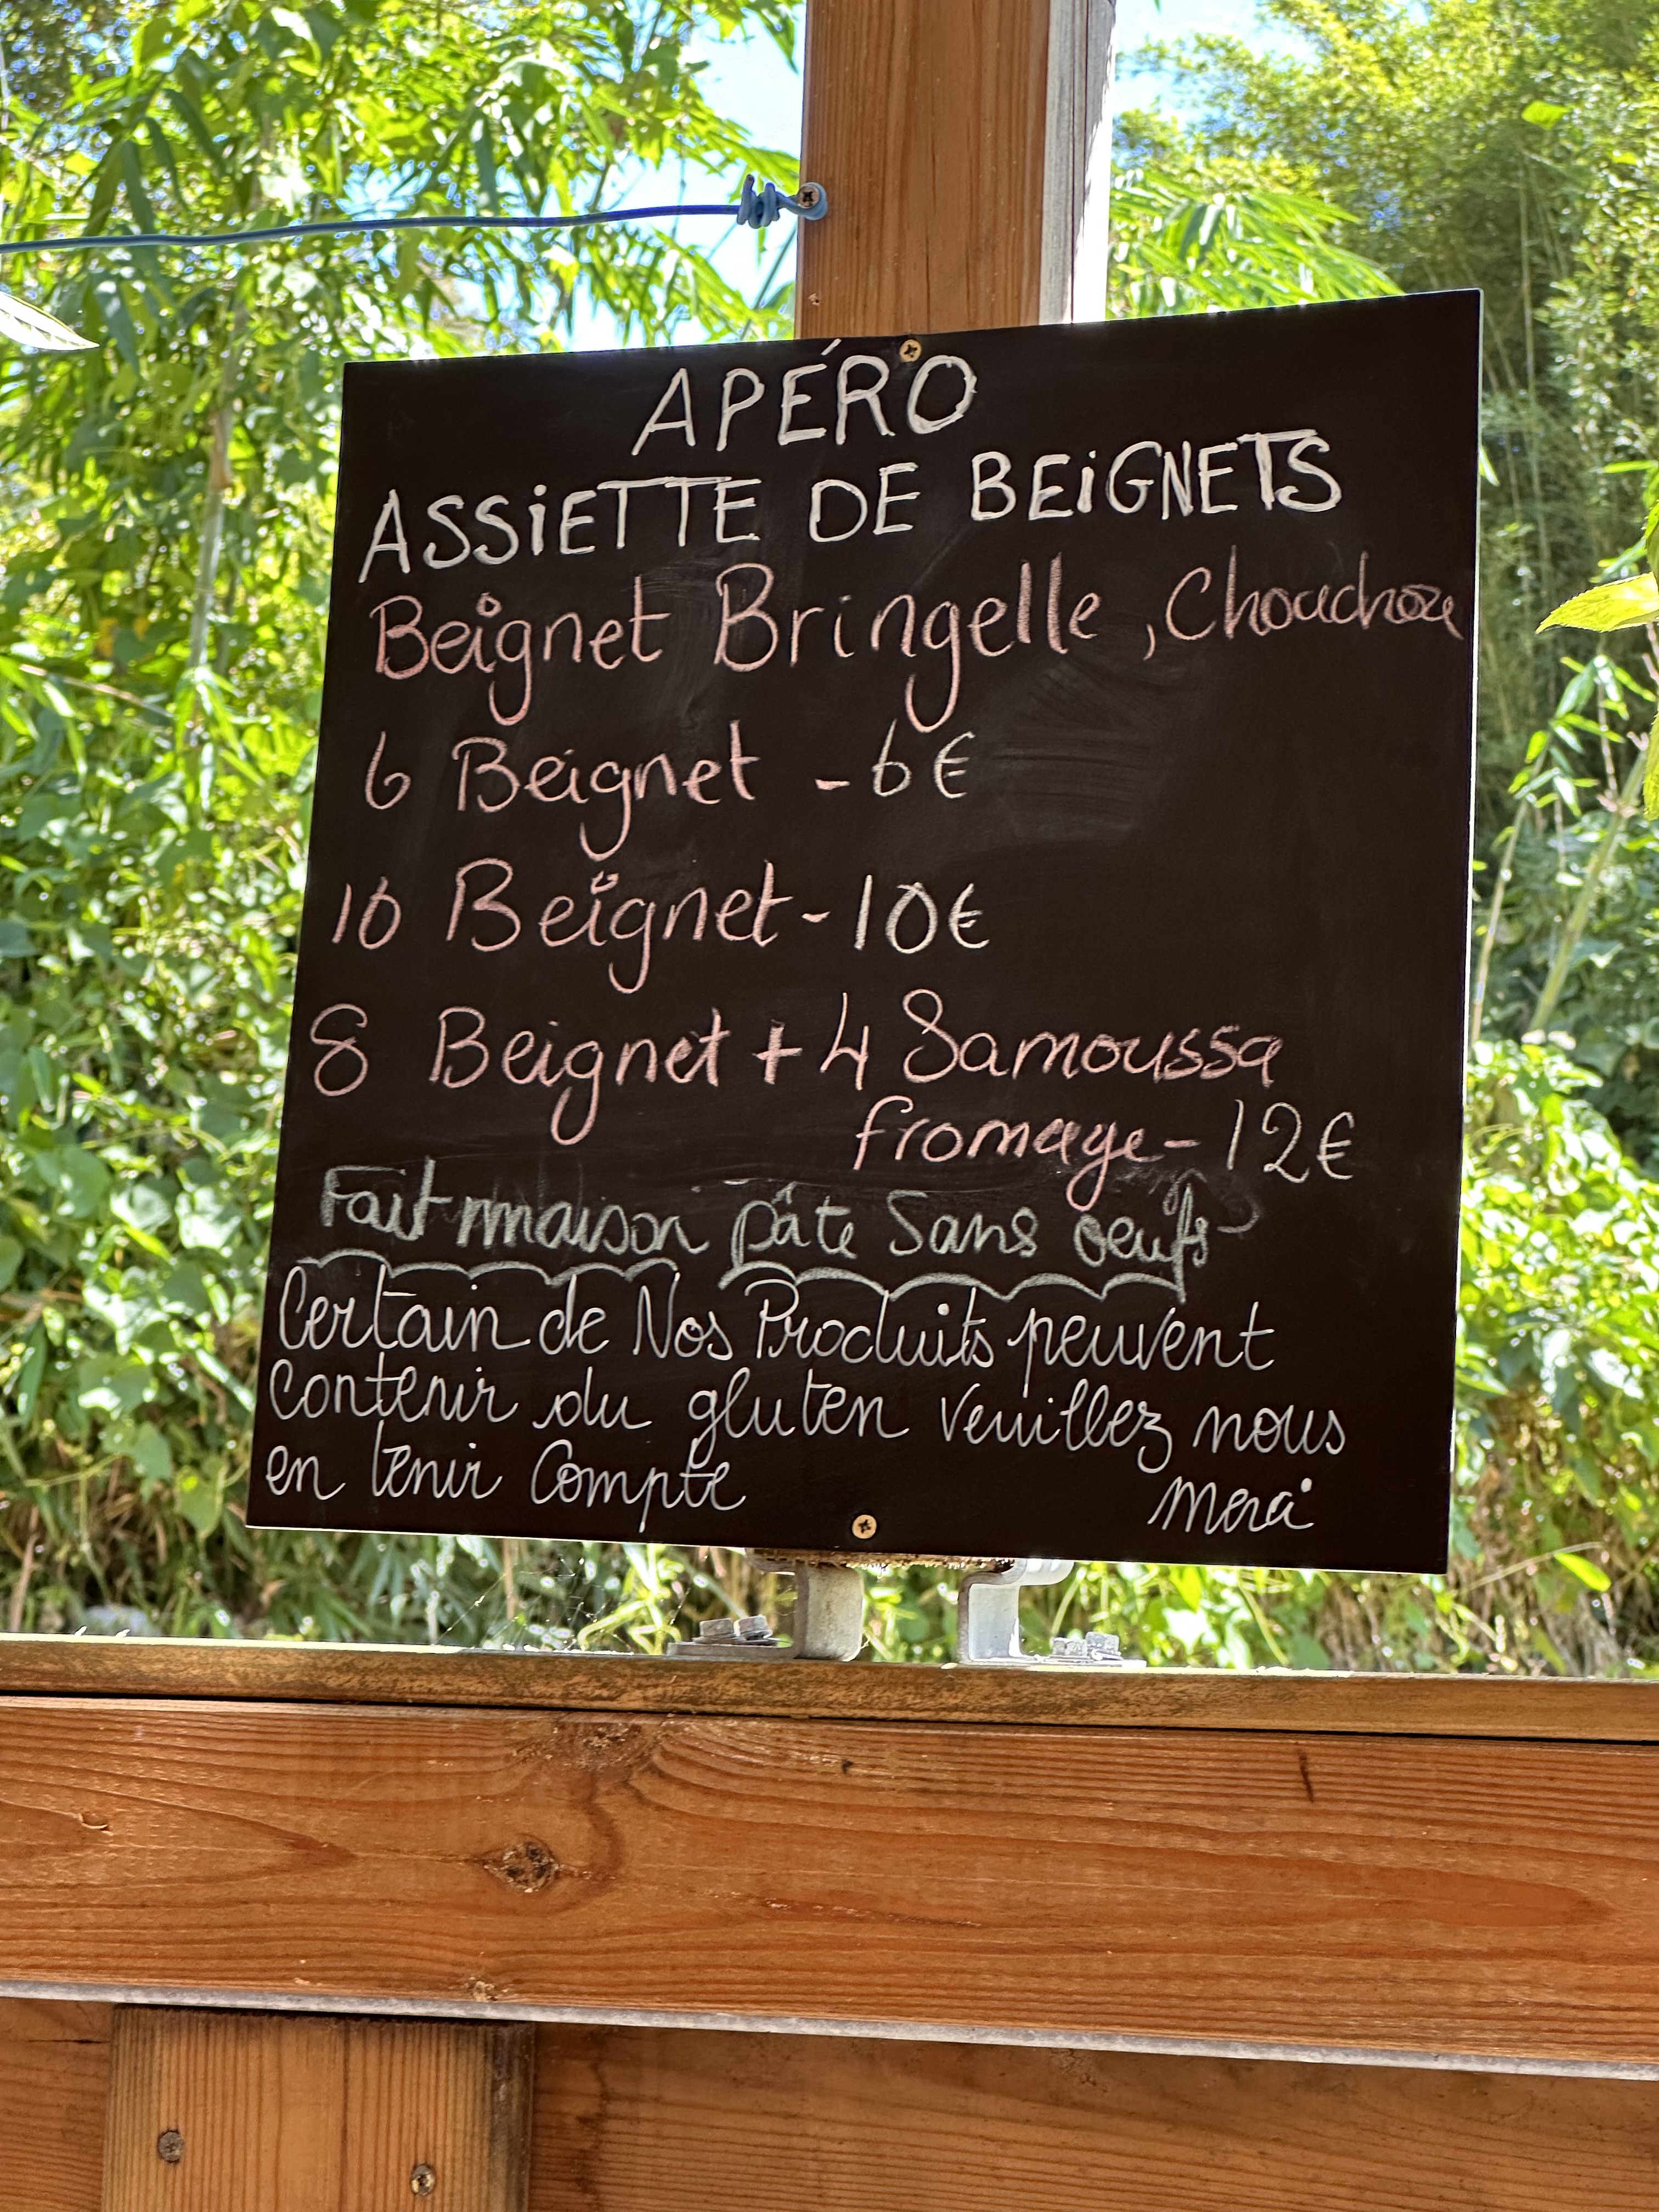 APÉRO
ASSiETTE DE BEiGNETS
Beignet Bringelle, Chouchou
6 Beignet - 6€
10 Beignet - 10€
8 Beignet + 4 Samoussa
fromage - 12€
Fait maison pâte Sans oeufs
Certain de Nos Produits peuvent
Contenir du gluten Veuillez nous
en tenir Compte
Merci